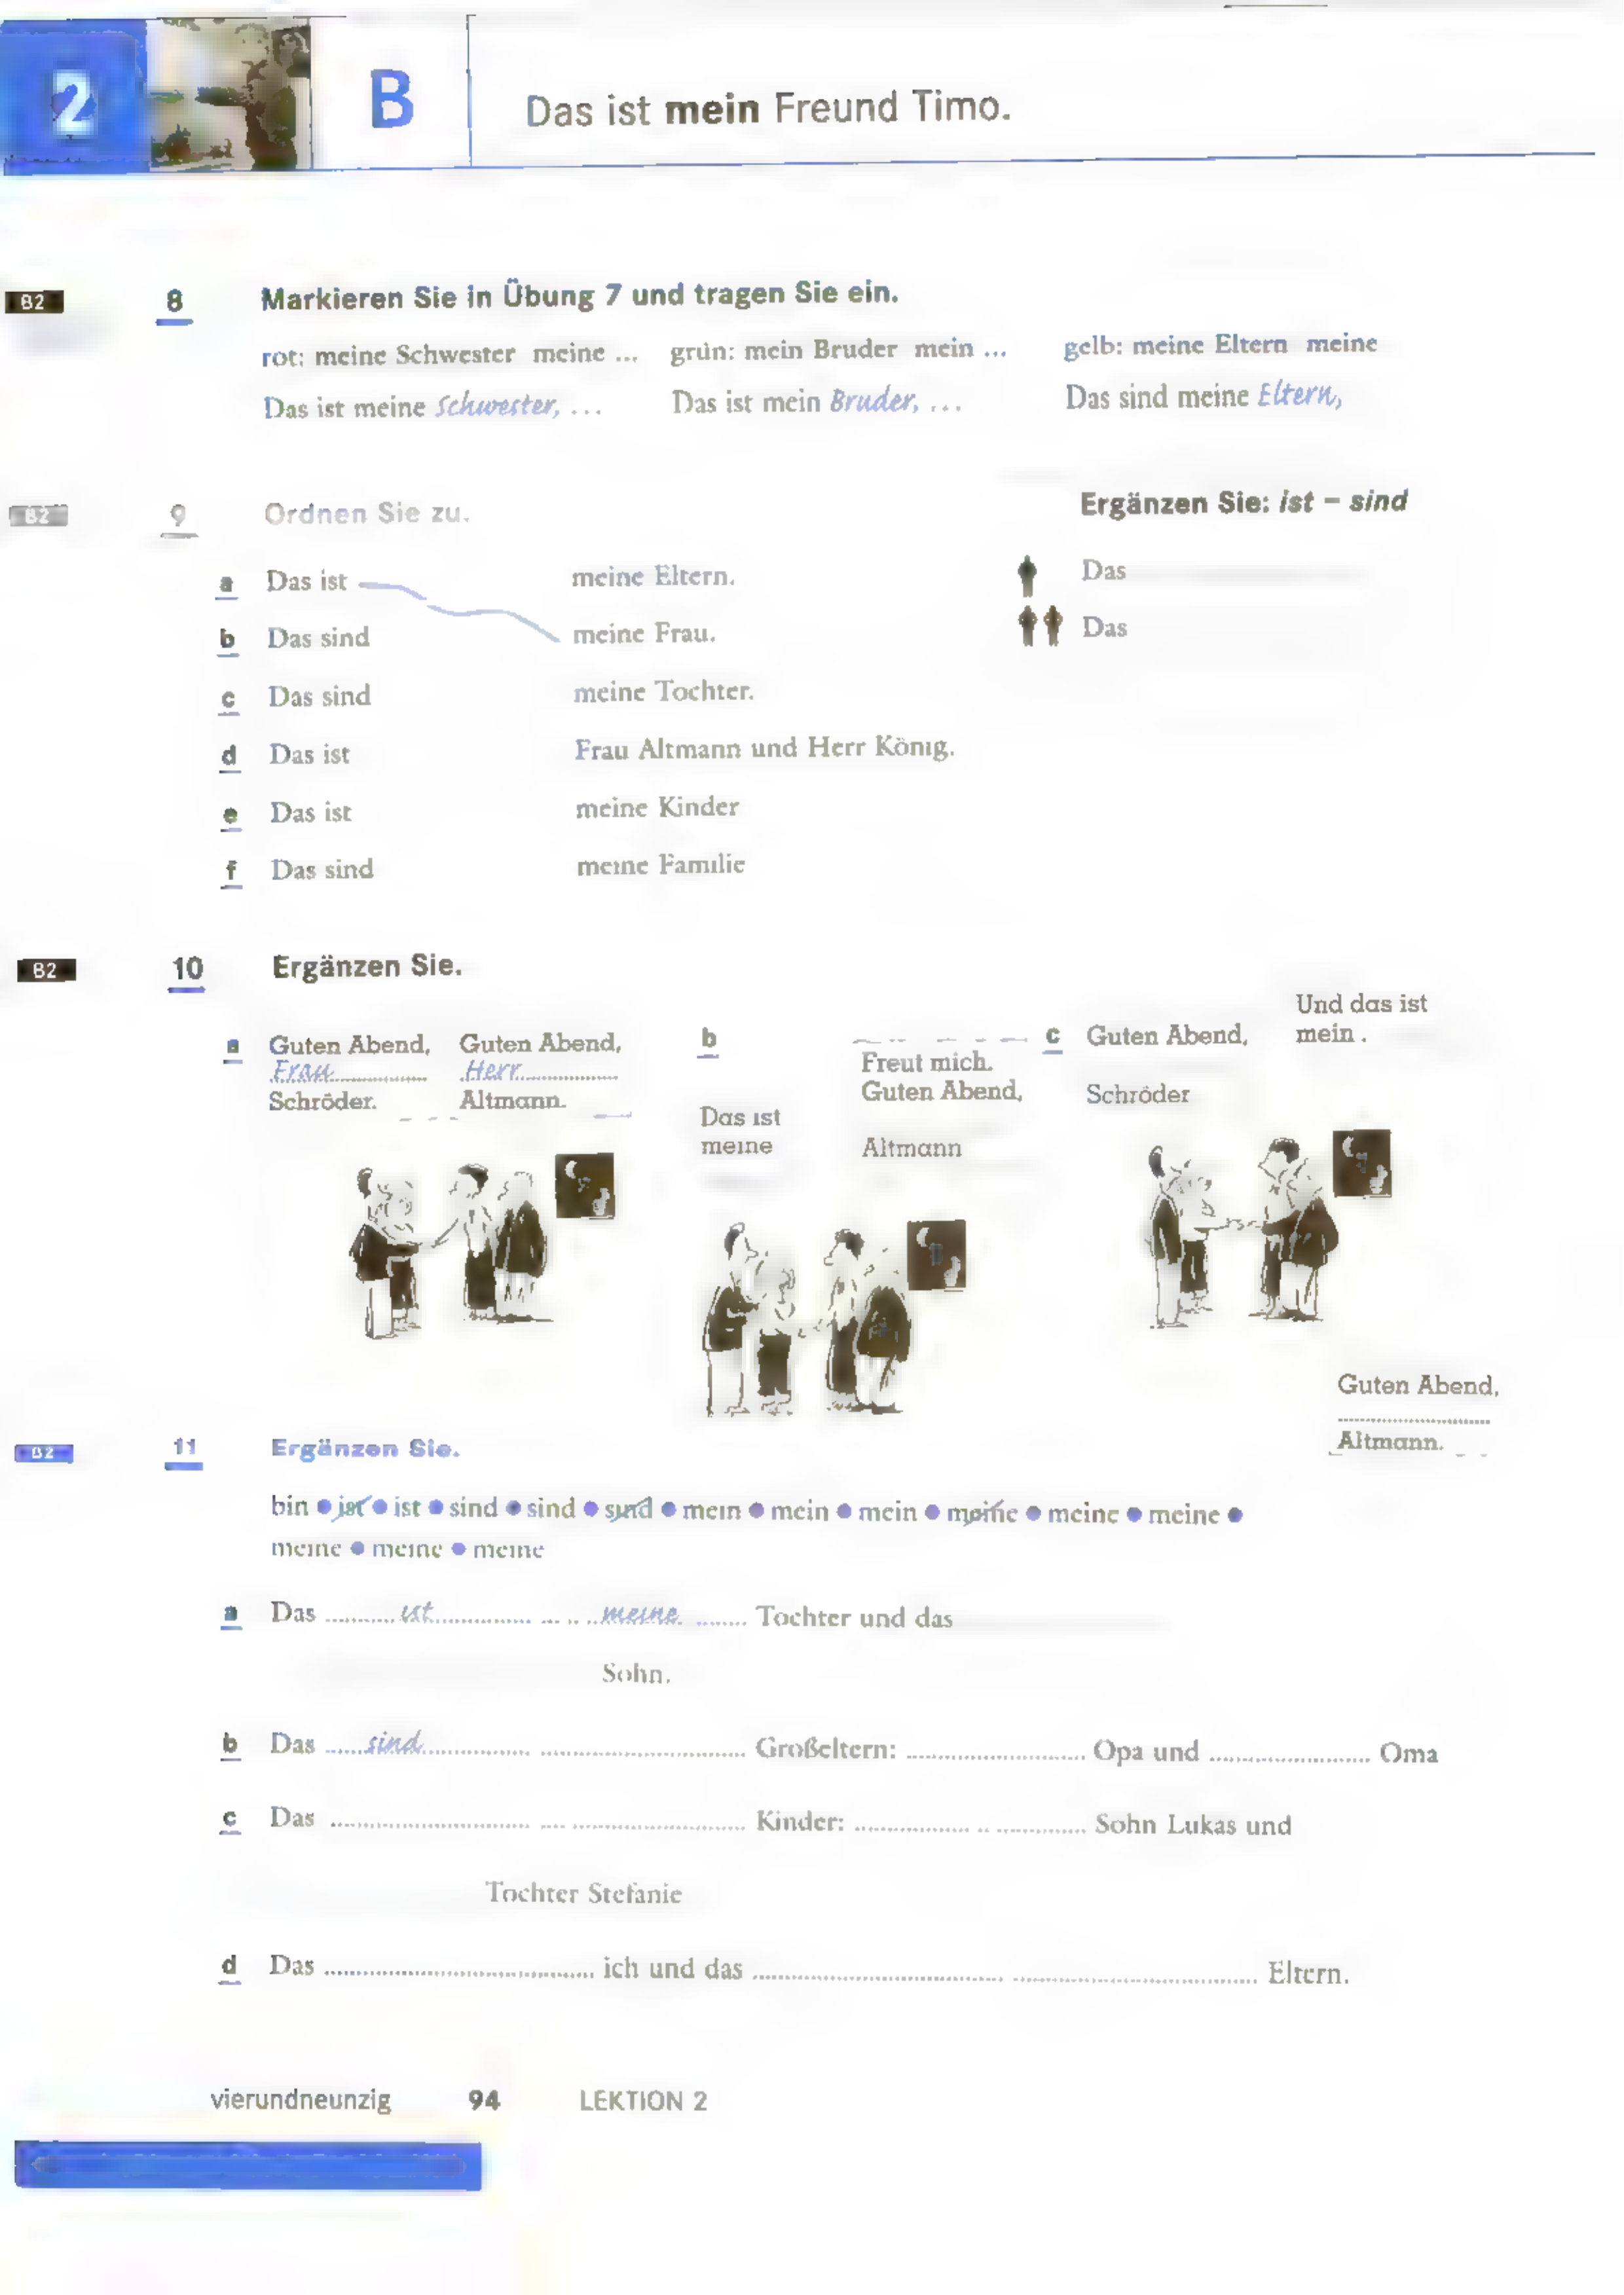 2 B Das ist mein Freund Timo.
B2 8 Markieren Sie in Übung 7 und tragen Sie ein.
rot: meine Schwester meine ... grün: mein Bruder mein ... gelb: meine Eltern meine
Das ist meine Schwester, ... Das ist mein Bruder, ... Das sind meine Eltern,
B2 9 Ordnen Sie zu.
a Das ist meine Eltern.
b Das sind meine Frau.
c Das sind meine Tochter.
d Das ist Frau Altmann und Herr König.
e Das ist meine Kinder
f Das sind meine Familie
Ergänzen Sie: ist – sind
Das
Das
B2 10 Ergänzen Sie.
a Guten Abend, Guten Abend,
Frau Herr
Schröder. Altmann.
b
Das ist
meine
Freut mich.
Guten Abend,
Altmann
c Guten Abend,
Schröder
Und das ist
mein .
Guten Abend,
Altmann.
B2 11 Ergänzen Sie.
bin ● ist ● ist ● sind ● sind ● sind ● mein ● mein ● mein ● meine ● meine ● meine ●
meine ● meine ● meine
a Das ist meine Tochter und das
Sohn.
b Das sind Großeltern: Opa und Oma
c Das Kinder: Sohn Lukas und
Tochter Stefanie
d Das ich und das Eltern.
vierundneunzig 94 LEKTION 2